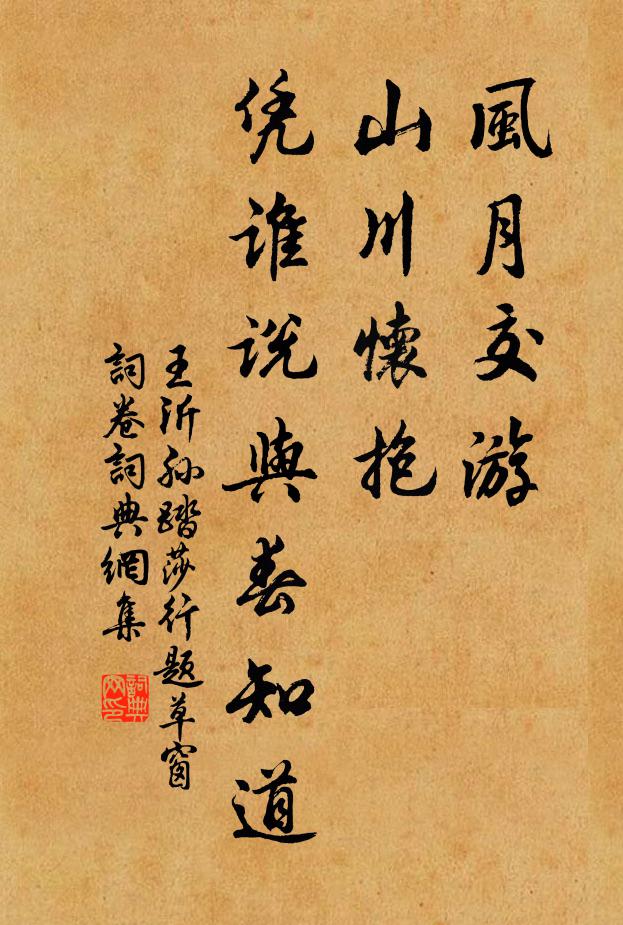 風月交游
山川懷抱
凭誰説與春知道
王沂孫踏莎行題草窗
詞卷詞典網集
詞典網印